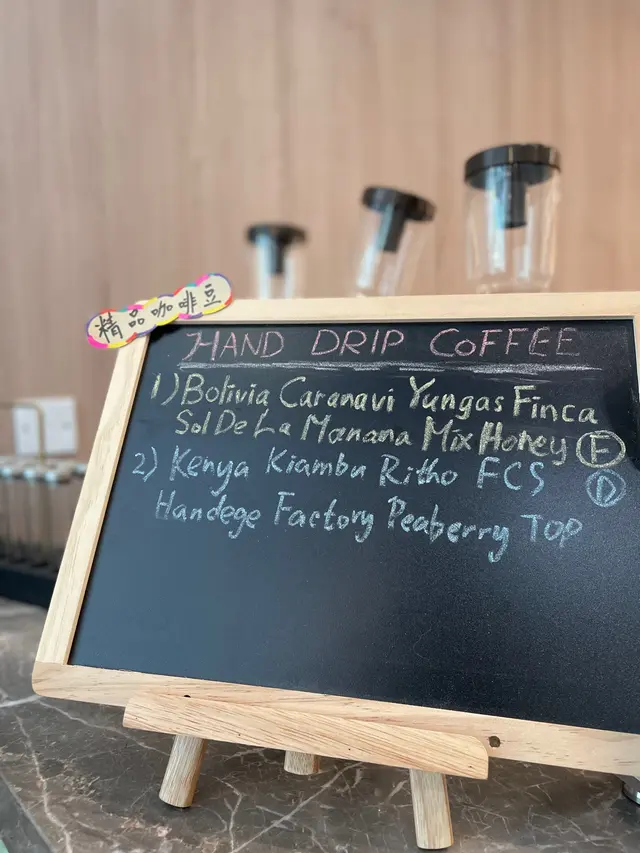 精品咖啡豆
HAND DRIP COFFEE
1) Bolivia Caranavi Yungas Finca
Sol De La Manana Mix Honey Ⓕ
2) Kenya Kiambu Ritho FCS Ⓓ
Handege Factory Peaberry TOP